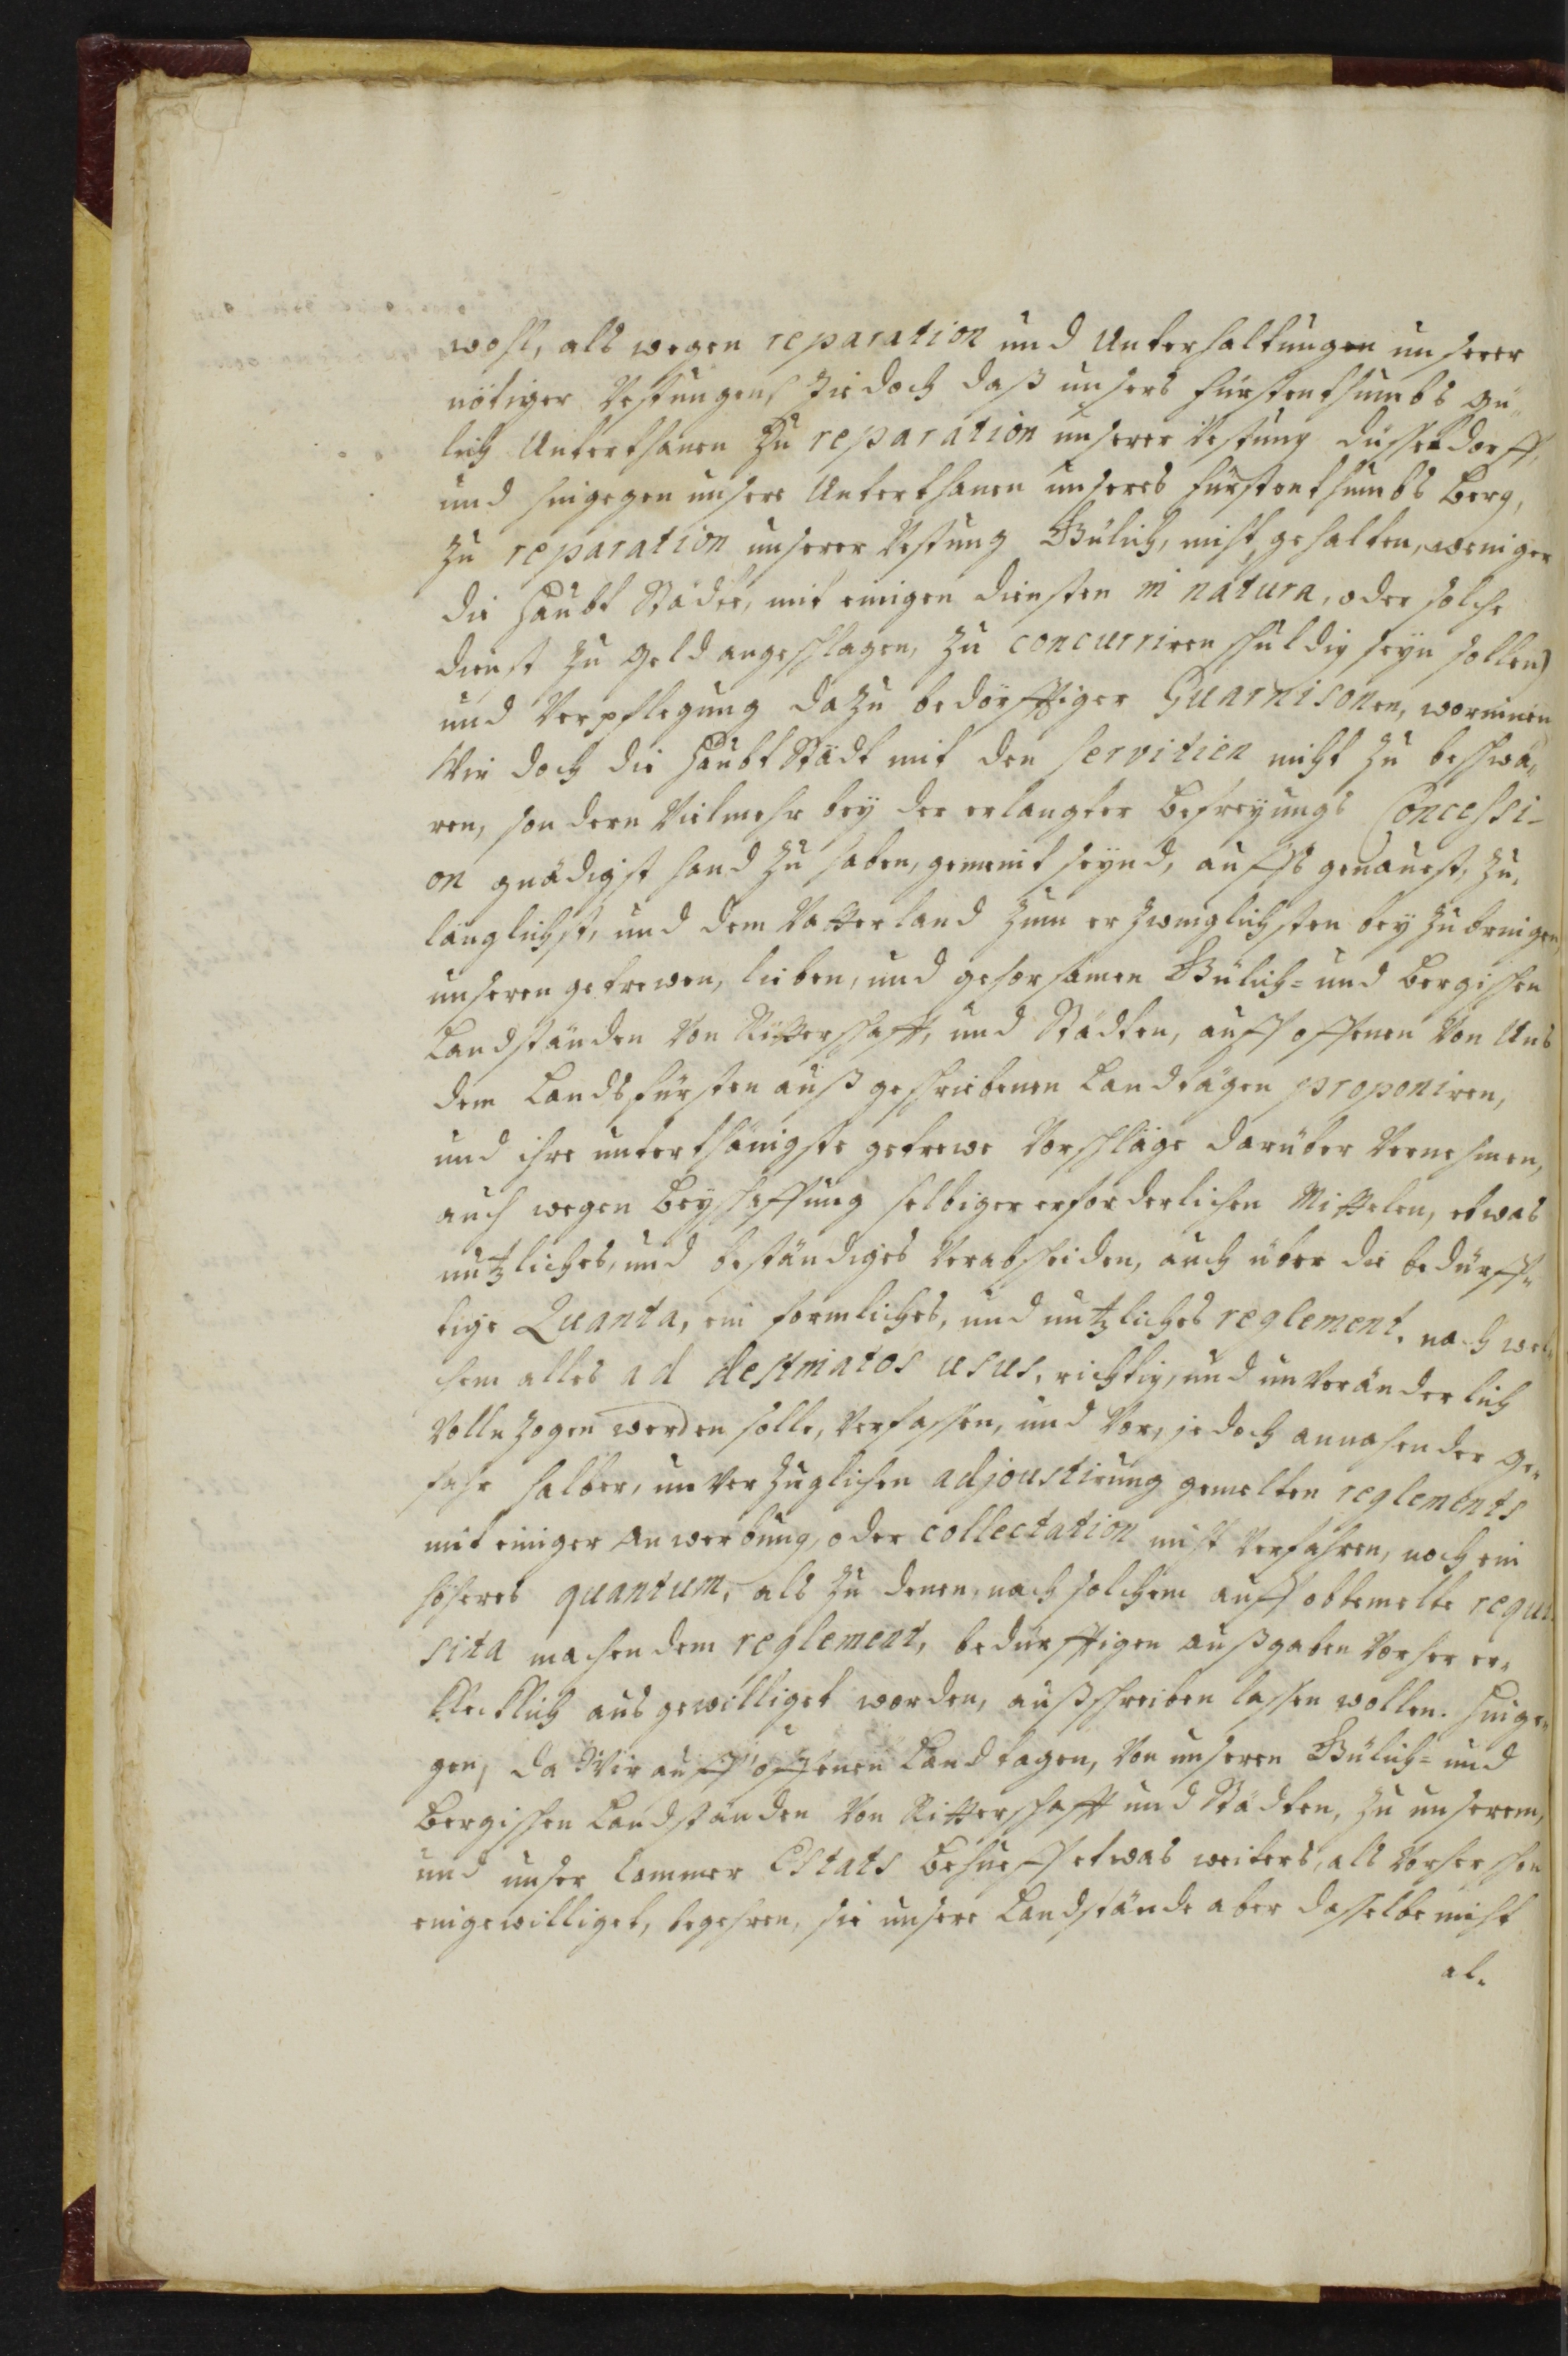 wohl, als wegen reparation und Unterhaltungen unserer
nötiger Vestungen, (jedoch daß unsers Fürstenthumbs Gü„
lich Unterthanen zu reparation unserer Vestung Düsseldorff,
und hingegen unsere Unterthanen unseres Fürstenthumbs Berg,
zu reparation unserer Vestung Gülich, nicht gehalten, weniger
die Haubt Städte, mit einigen diensten in natura, oder solche
dienst zu geld angeschlagen, zu concurriren schuldig seyn sollen)
und Verpflegung dazu bedörfftiger Guarnisonen, worinnen
Wir doch die HaubtStädt mit den Servitien nicht zu beschwä„
ren, sondern Vielmehr bey der erlangter befreyungs Concessi-
on gnädigst hand zu haben, gemeint seynd, auffs genauest, zu„
länglichst, und dem Vatterland zum erzwinglichsten beyzubringen,
unseren getrewen, lieben, und gehorsamen Gülich- und Bergischen
Landständen Von Ritterschafft, und Städten, auff offenen Von Uns
dem Landsfürsten außgeschriebenen Landtägen proponiren,
und ihre unterthänigste getrewe Vorschläge darüber Vernehmen,
auch wegen Beyschaffung selbiger erforderlichen Mittelen, etwas
nutzliches, und beständiges Verabscheiden, auch über die bedürff„
tige Quanta, ein formliches, und nutzliches reglement, nach wel„
chem alles ad destinatos usus, richtig, und unVeränderlich
Vollnzogen werden solle, Verfassen, und Vor, jedoch annahender ge„
fahr halber, unVerzuglichen adjoustirung gemelten reglements
mit einiger Anwerbung, oder collectation nicht Verfahren, noch ein
höheres quantum, als zu denen, nach solchem auff obbemelte requi„
sita machendem reglement, bedürfftigen außgaben Vorher er„
klecklich aus gewilliget worden, außschreiben lassen wollen. Hinge„
gen, da Wir auff offenen Landtagen, Von unseren Gülich- und
Bergischen Landständen Von Ritterschafft und Städten, zu unserem,
und unser Cammer Estats Behueff etwas weiters, als Vorher schon
eingewilliget, begehren, sie unsere Landstände aber dasselbe nicht
al„